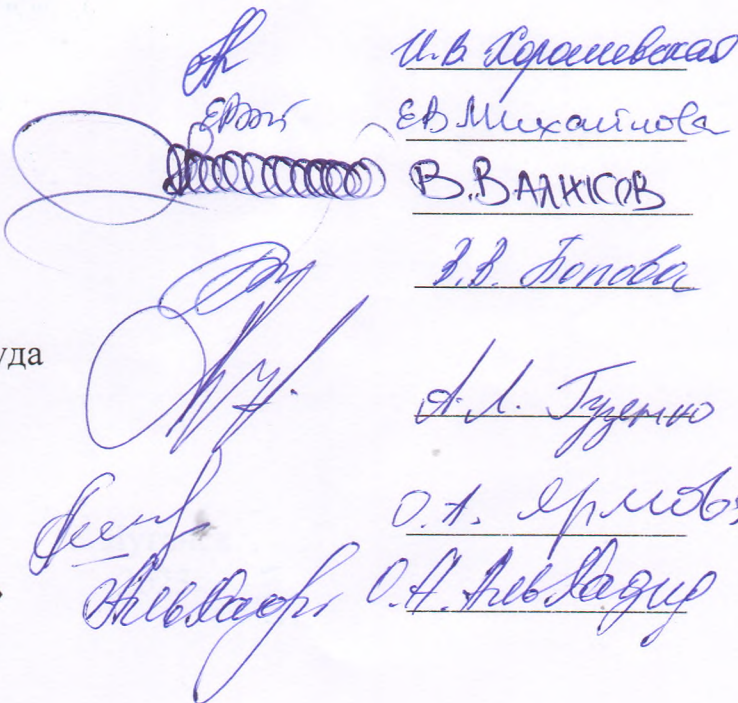 И.В. Хорошевская
Е.В. Михайлова
В. ВАЛЖСОВ
В.В. Попова
уда
А.Л. Гузенко
О.А.
О.А. Аль Хадид